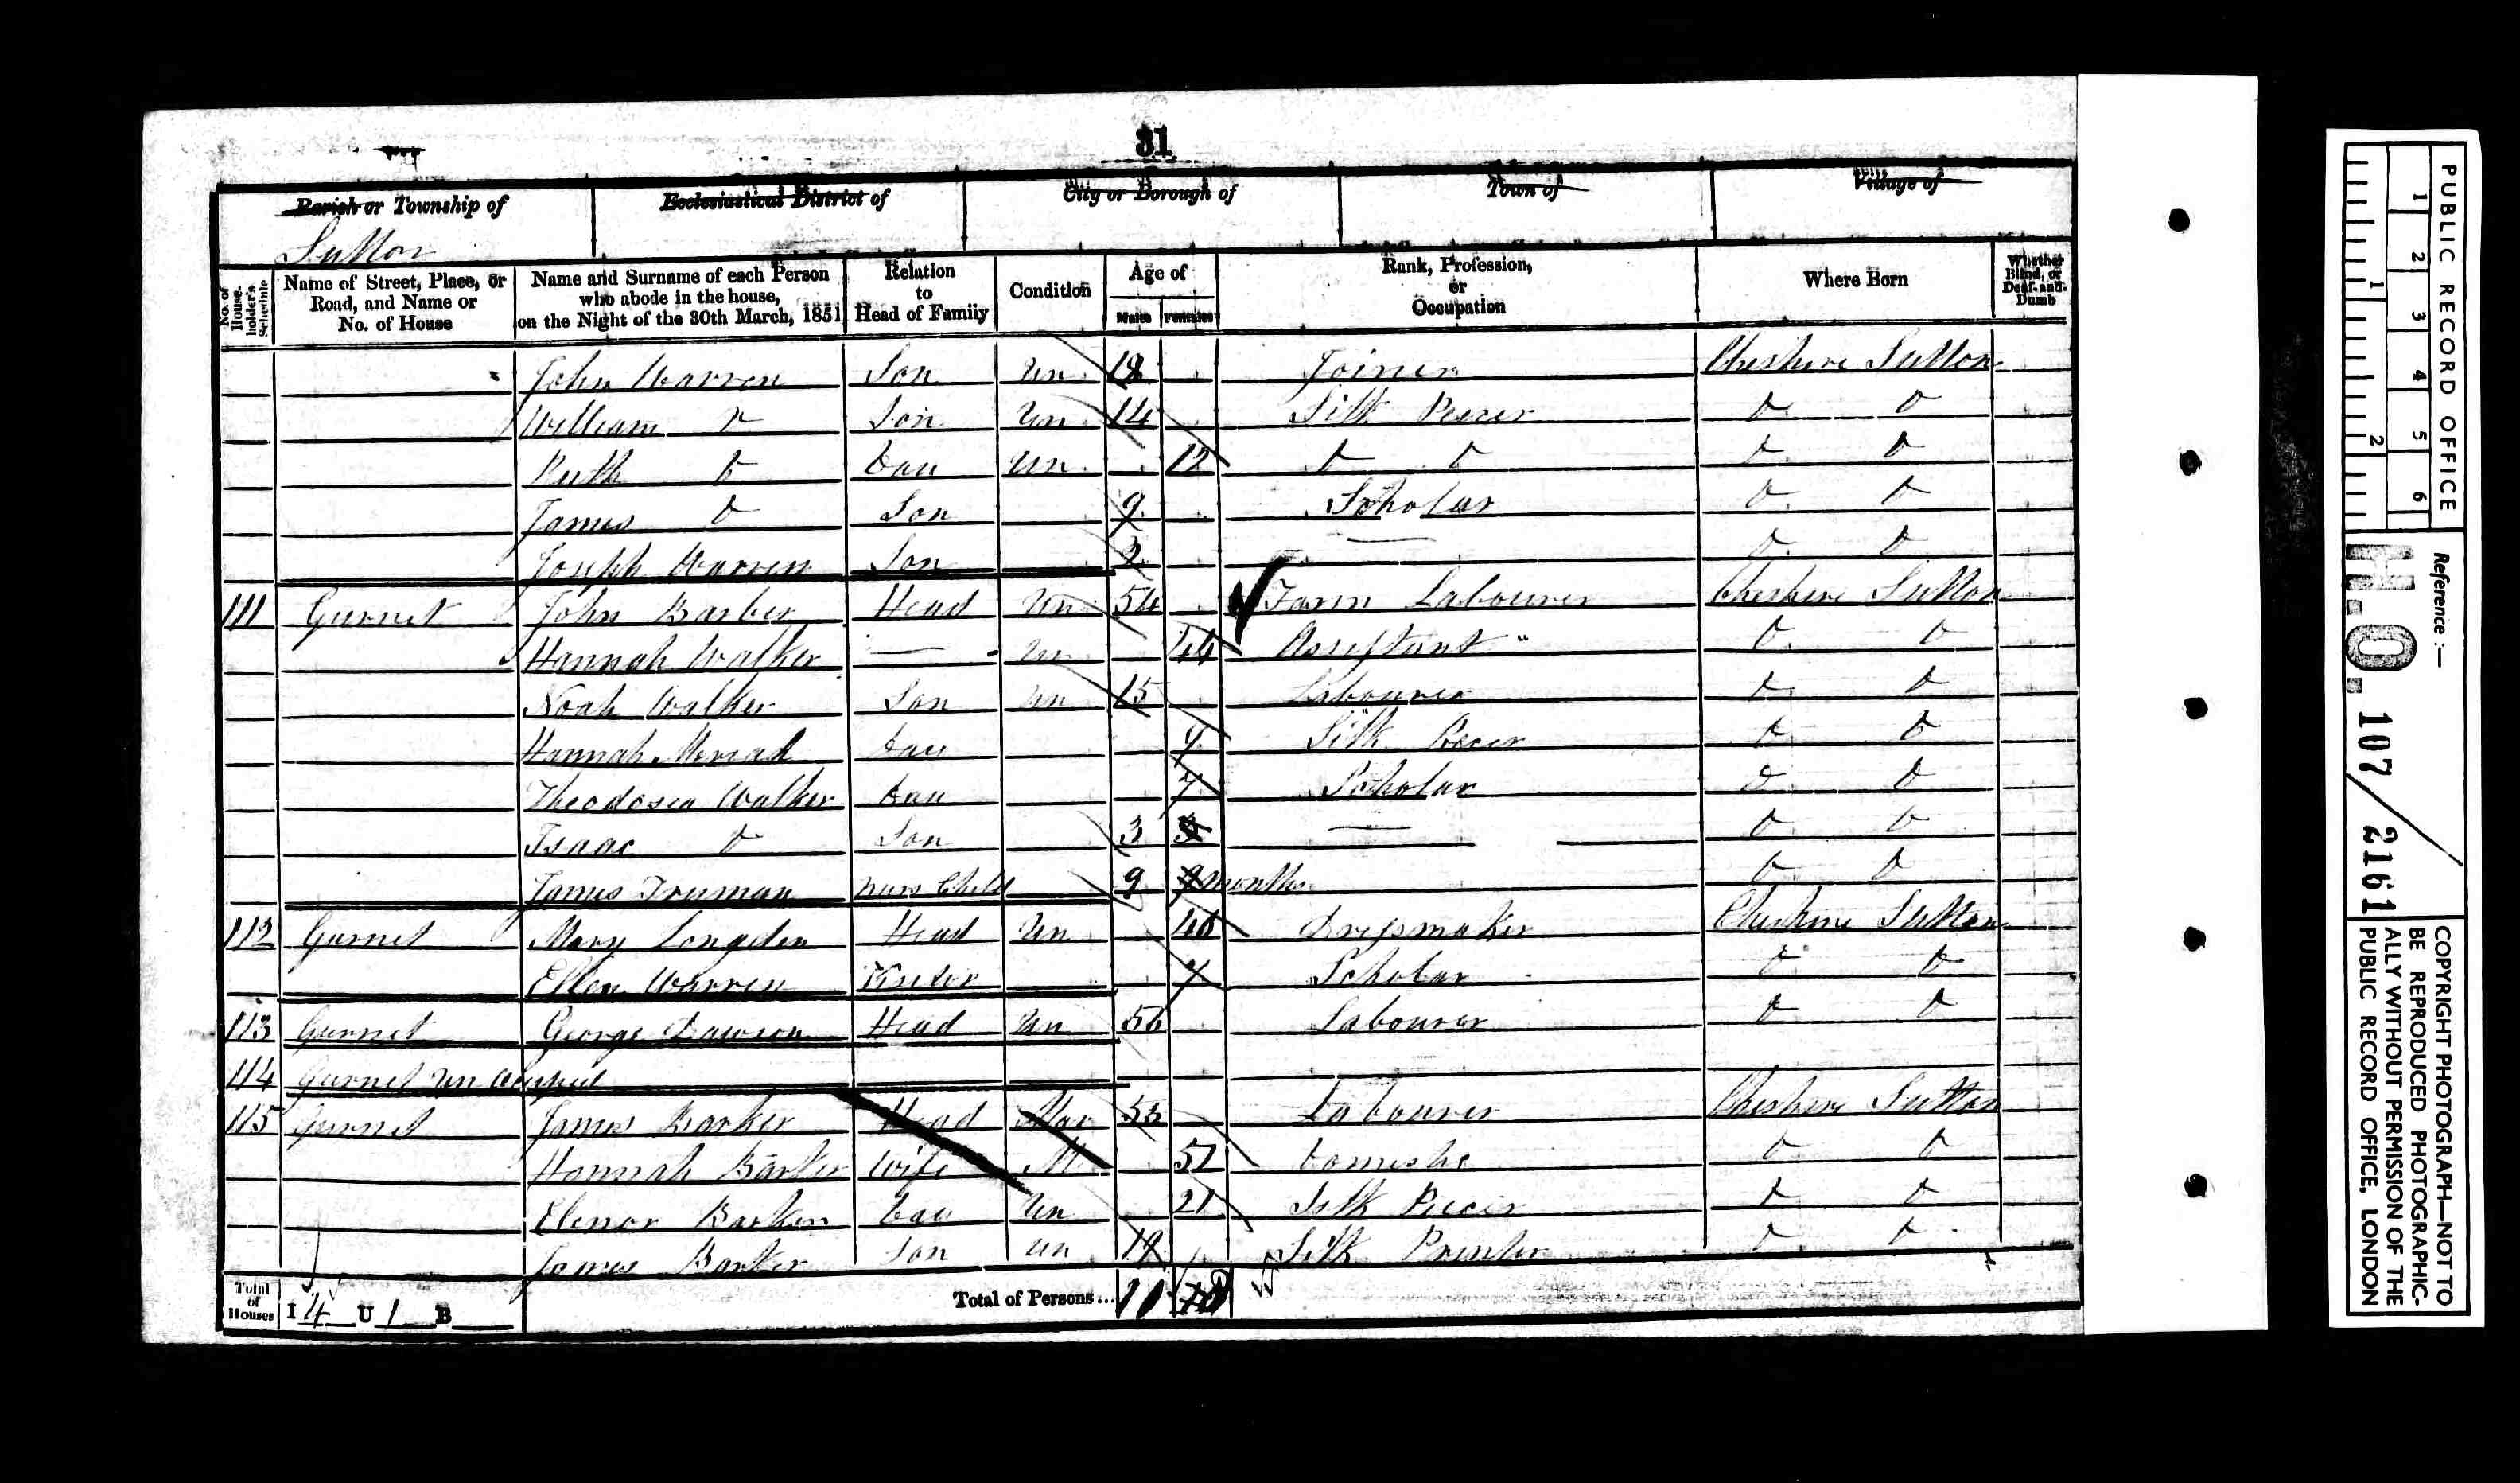 31
Parish or Township of Ecclesiastical District of City or Borough of Town of Village of
Sutton
No. of House-holder's Schedule
Name of Street, Place, or Road, and Name or No. of House
Name and Surname of each Person who abode in the house, on the Night of the 30th March, 1851
Relation to Head of Family
Condition
Age of
Males Females
Rank, Profession, or Occupation
Where Born
Whether Blind, or Deaf-and-Dumb
John Warren Son Un 18 Joiner Cheshire Sutton
William Do Son Un 14 Silk Piecer Do Do
Ruth Do Dau Un 12 Do Do Do Do
James Do Son 9 Scholar Do Do
Joseph Warren Son 2 — Do Do
111 Gurnet John Barber Head Un 54 Farm Labourer Cheshire Sutton
Hannah Walker — Un 44 Assistant " Do Do
Noah Walker Son Un 15 Labourer Do Do
Hannah Dau 9 Silk Piecer Do Do
Theodosea Walker Dau 7 Scholar Do Do
Isaac Do Son 3 3 — Do Do
James Truman Nurs Child 9 9 months Do Do
112 Gurnet Mary Longden Head Un 46 Dressmaker Cheshire Sutton
Ellen Warren Visitor 7 Scholar Do Do
113 Gurnet George Dawson Head Un 56 Labourer Do Do
114 Gurnet Un Occupied
115 Gurnet James Barker Head Mar 53 Labourer Cheshire Sutton
Hannah Barker Wife M 51 Domestic Do Do
Elenor Barker Dau Un 21 Silk Piecer Do Do
James Barker Son Un 19 Silk Printer Do Do
Total of Houses I 4 U 1 B Total of Persons... 11
PUBLIC RECORD OFFICE
1 2 3 4 5 6
1 2
Reference :—
H.O. 107/2161
COPYRIGHT PHOTOGRAPH—NOT TO
BE REPRODUCED PHOTOGRAPHIC-
ALLY WITHOUT PERMISSION OF THE
PUBLIC RECORD OFFICE, LONDON